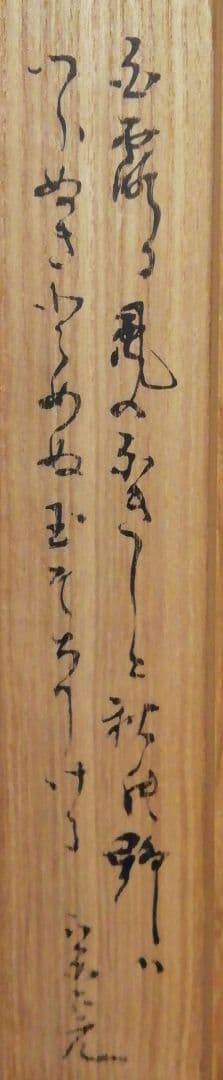 白露に風のふきしく秋の野は
つらぬきとめぬ玉そちりける